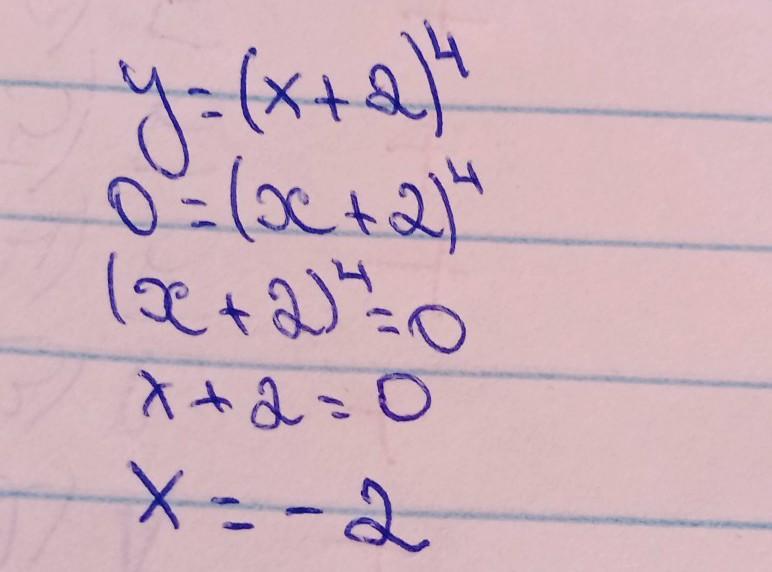 y=(x+2)^4
0=(x+2)^4
(x+2)^4=0
x+2=0
x=-2